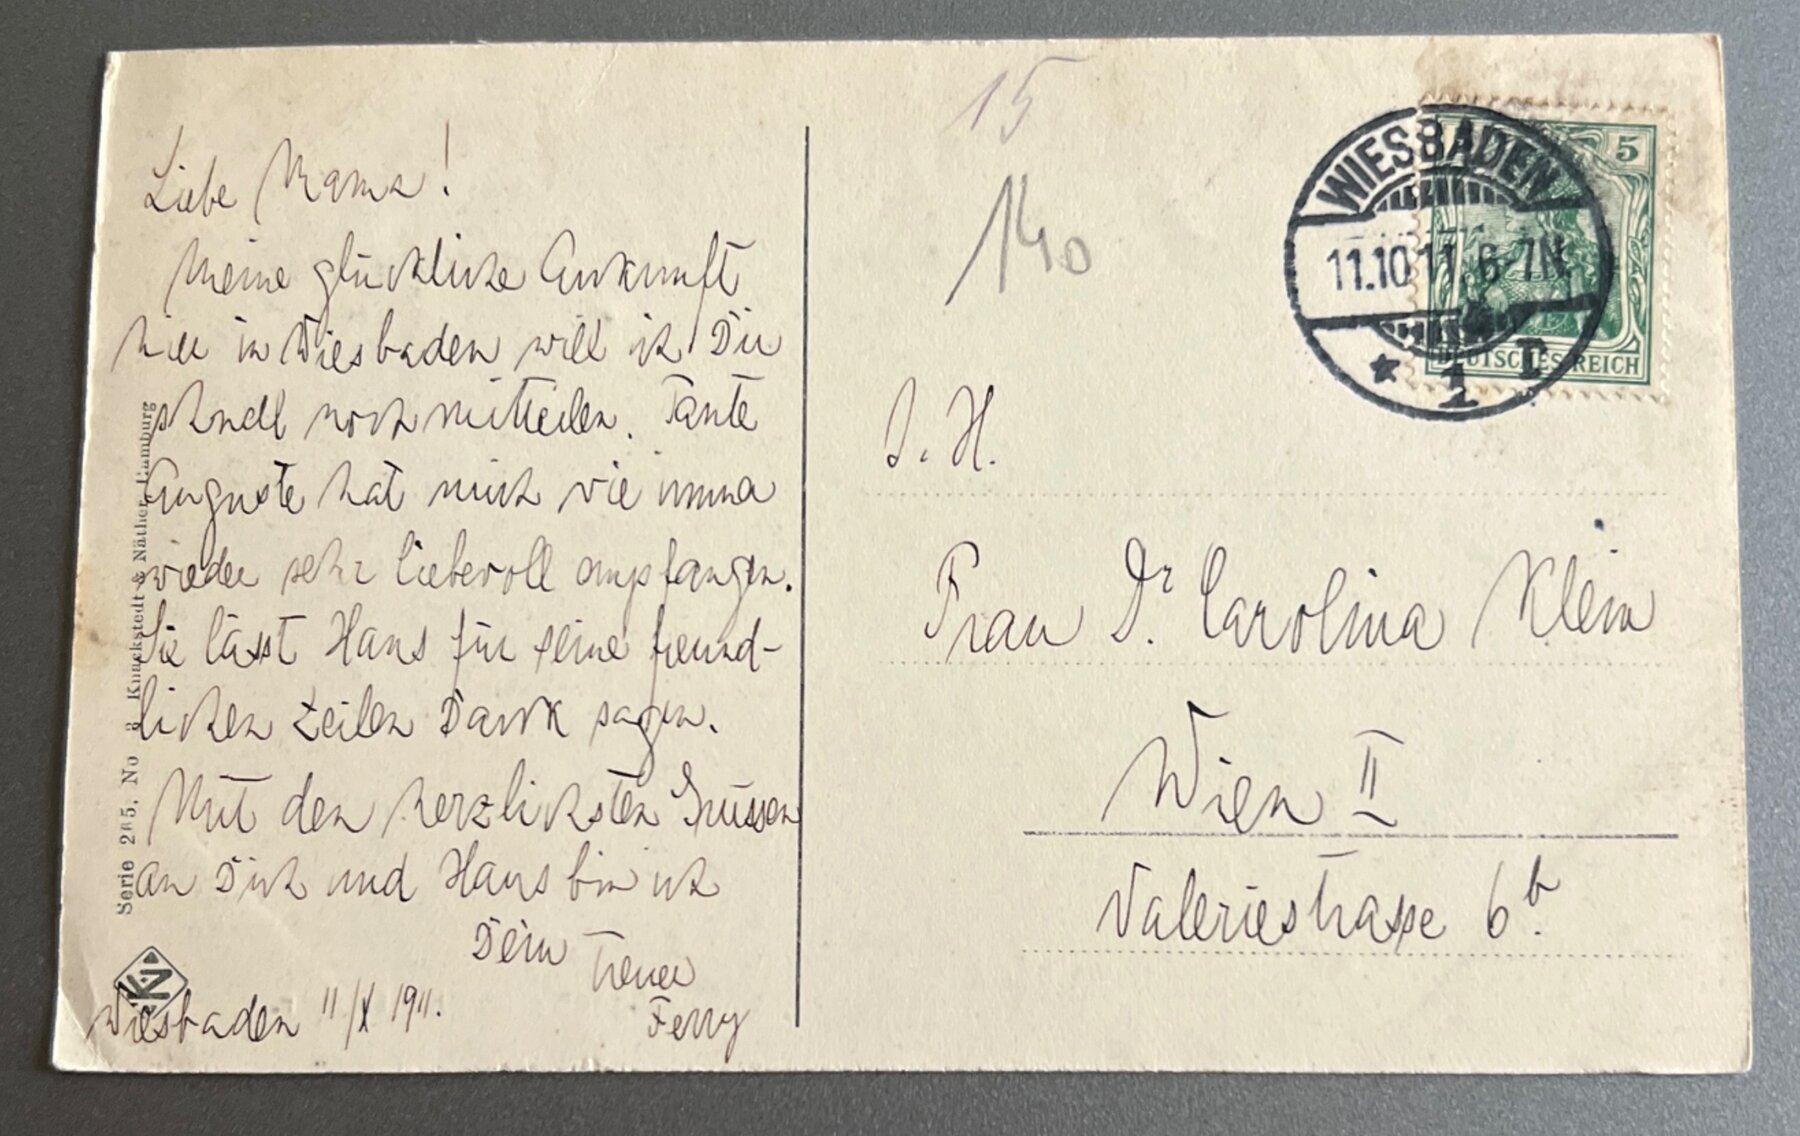 Liebe Mama!
Meine glückliche Ankunft
hier in Wiesbaden will ich Dir
schnell noch mitteilen. Tante
Auguste hat mich wie immer
wieder sehr liebevoll empfangen.
Sie lässt Hans für seine freund-
lichen Zeilen Dank sagen.
Mit den herzlichsten Grüssen
an Dich und Hans bin ich
Dein treuer
Ferry
Wiesbaden 11/X 1911.
Serie 265, No 3 Knackstedt & Näther, Hamburg
KN
15
140
WIESBADEN
11.10.11. 6-7N.
* 1 D
5
DEUTSCHES REICH
I. H.
Frau Dr. Carolina Klein
Wien II
Valeriestrasse 6b.